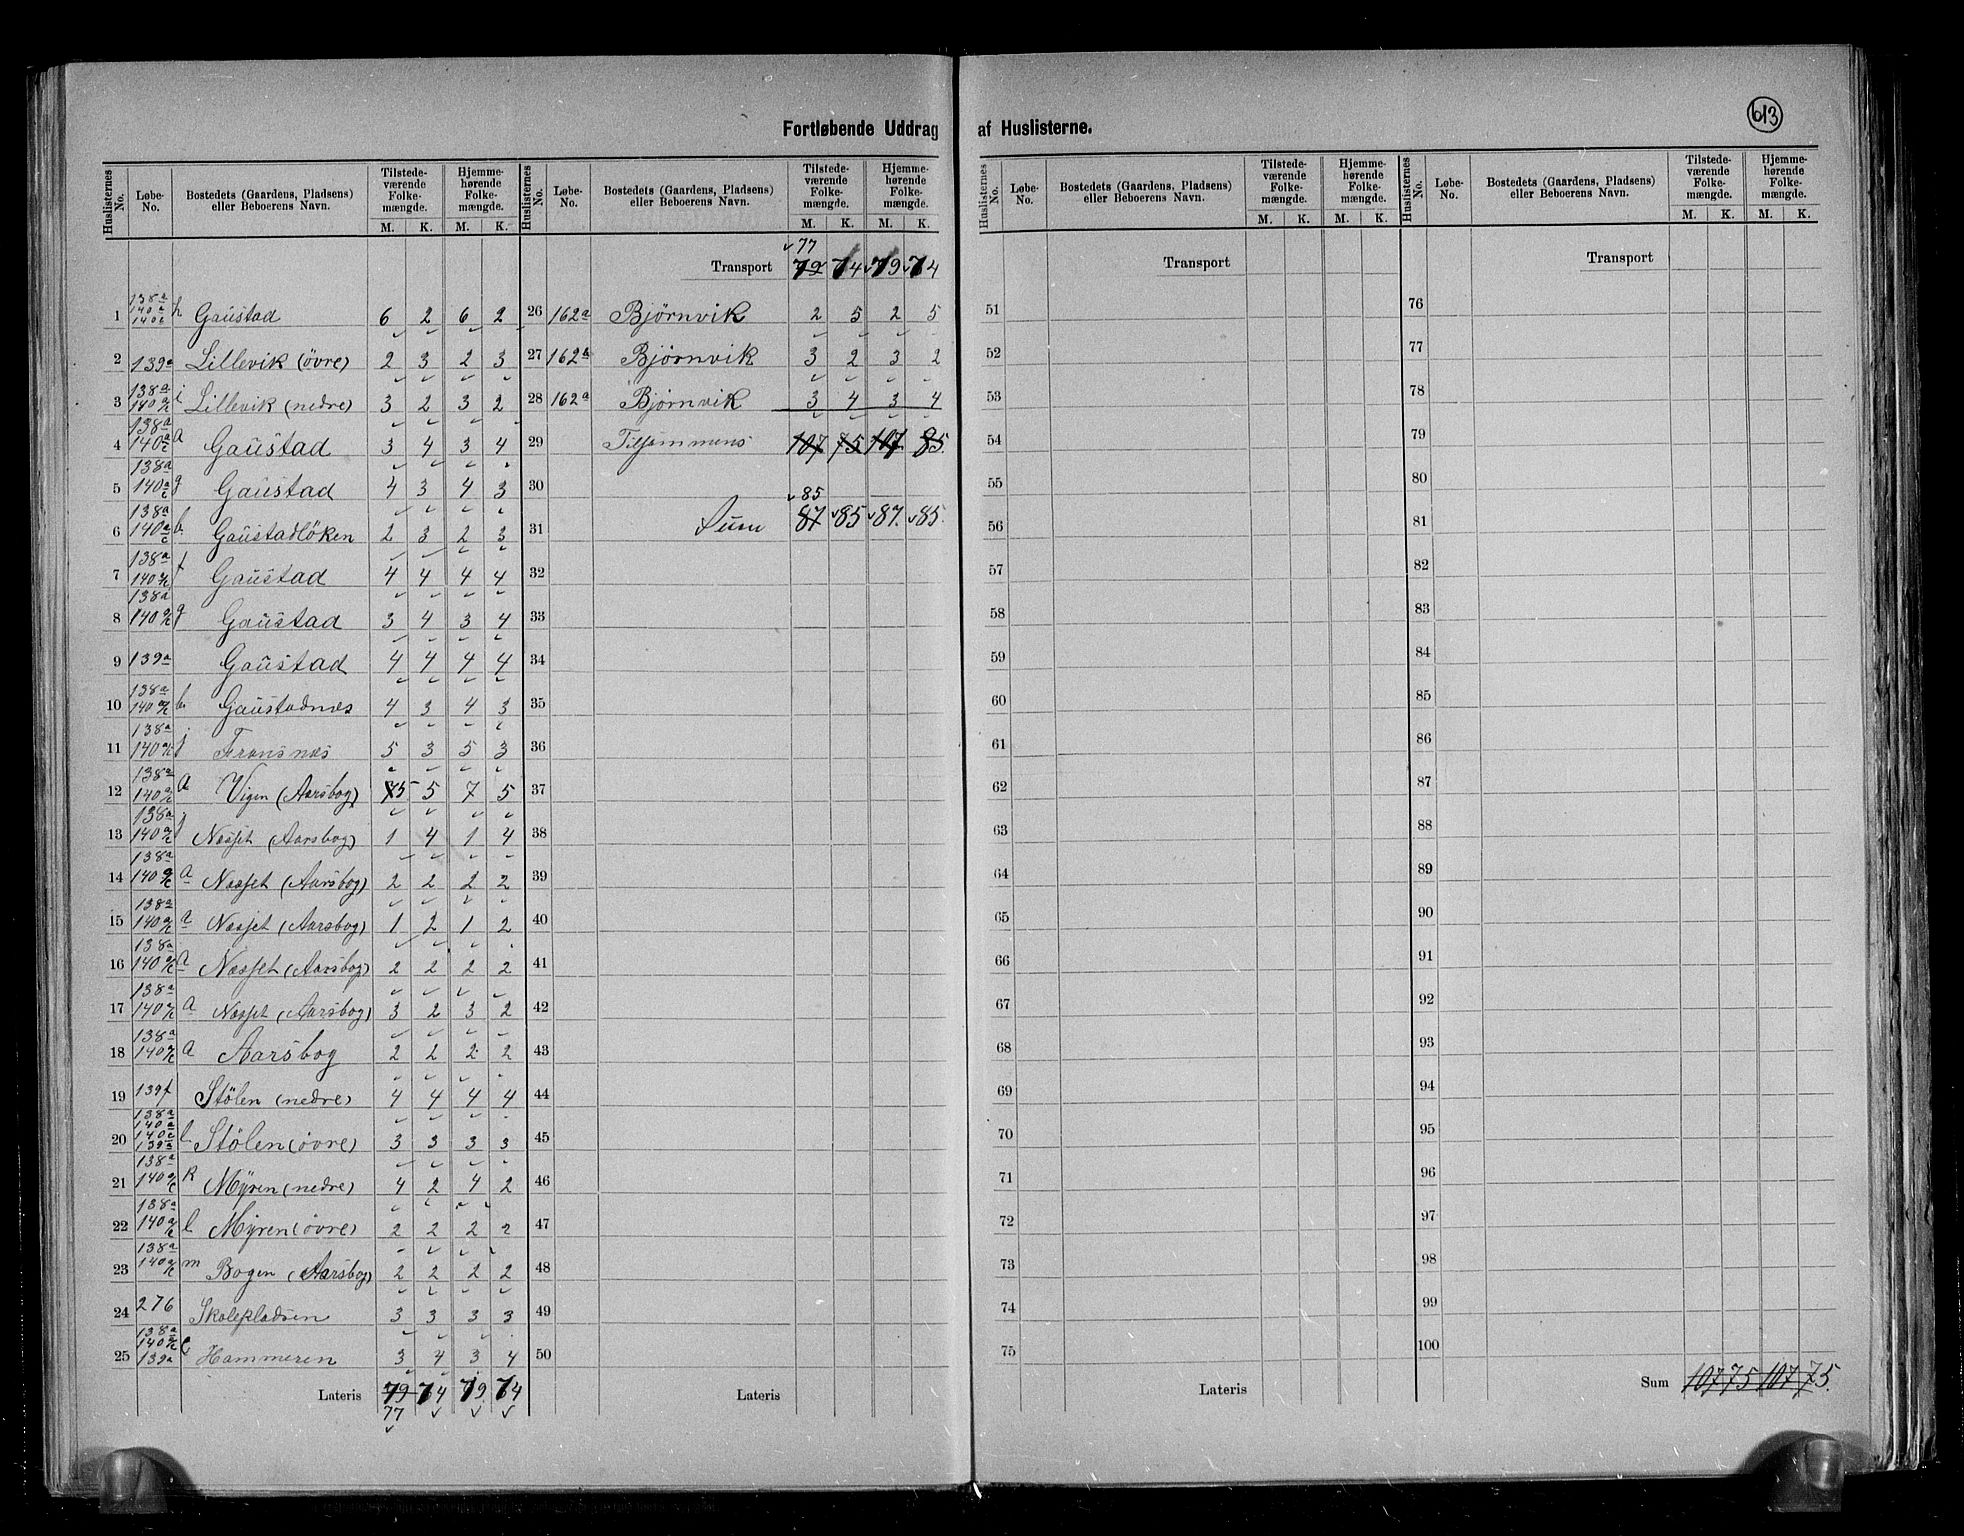 613
Fortløbende Uddrag af Huslisterne.
Huslisternes No. Løbe-No. Bostedets (Gaardens, Pladsens) eller Beboerens Navn. Tilstedeværende Folkemængde. M. K. Hjemmehørende Folkemængde. M. K.
Huslisternes No. Løbe-No. Bostedets (Gaardens, Pladsens) eller Beboerens Navn. Tilstedeværende Folkemængde. M. K. Hjemmehørende Folkemængde. M. K.
Huslisternes No. Løbe-No. Bostedets (Gaardens, Pladsens) eller Beboerens Navn. Tilstedeværende Folkemængde. M. K. Hjemmehørende Folkemængde. M. K.
Huslisternes No. Løbe-No. Bostedets (Gaardens, Pladsens) eller Beboerens Navn. Tilstedeværende Folkemængde. M. K. Hjemmehørende Folkemængde. M. K.
1 138a 140a 140c h Gaustad 6 2 6 2
2 139a Lillevik (övre) 2 3 2 3
3 138a 140a/c i Lillevik (nedre) 3 2 3 2
4 138a 140a/c a Gaustad 3 4 3 4
5 138a 140a/c g Gaustad 4 3 4 3
6 138a 140a/c b. Gaustadlöken 2 3 2 3
7 138a 140a/c f Gaustad 4 4 4 4
8 138a 140a/c g Gaustad 3 4 3 4
9 139a Gaustad 4 4 4 4
10 138a 140a/c b. Gaustadnæs 4 3 4 3
11 138a 140a/c j Fransnæs 5 3 5 3
12 138a 140a/c a Vigen (Aarsbog) 5 5 7 5
13 138a 140a/c j Næsset (Aarsbog) 1 4 1 4
14 138a 140a/c a Næsset (Aarsbog) 2 2 2 2
15 138a 140a/c a Næsset (Aarsbog) 1 2 1 2
16 138a 140a/c a Næsset (Aarsbog) 2 2 2 2
17 138a 140a/c a Næsset (Aarsbog) 3 2 3 2
18 138a 140a/c a Aarsbog 2 2 2 2
19 139f Stölen (nedre) 4 4 4 4
20 138a 140a 140c 139a l Stölen (övre) 3 3 3 3
21 138a 140a/c k Myren (nedre) 4 2 4 2
22 138a 140a/c l Myren (övre) 2 2 2 2
23 138a 140a/c m Bogen (Aarsbog) 2 2 2 2
24 276 Skolepladsen 3 3 3 3
25 138a 140a/c 139a Hammeren 3 4 3 4
Lateris 79 74 79. 74
77
77
Transport 79 74 79 74
26 162a Bjørnvik 2 5 2 5
27 162a Bjørnvik 3 2 3 2
28 162a Bjørnvik 3 4 3 4
29 Tilsammens 107 75 107. 85.
30
85
31 Sum 87 85 87. 85.
32
33
34
35
36
37
38
39
40
41
42
43
44
45
46
47
48
49
50
Lateris
Transport
51
52
53
54
55
56
57
58
59
60
61
62
63
64
65
66
67
68
69
70
71
72
73
74
75
Lateris
Transport
76
77
78
79
80
81
82
83
84
85
86
87
88
89
90
91
92
93
94
95
96
97
98
99
100
Sum 107 75 107 75.